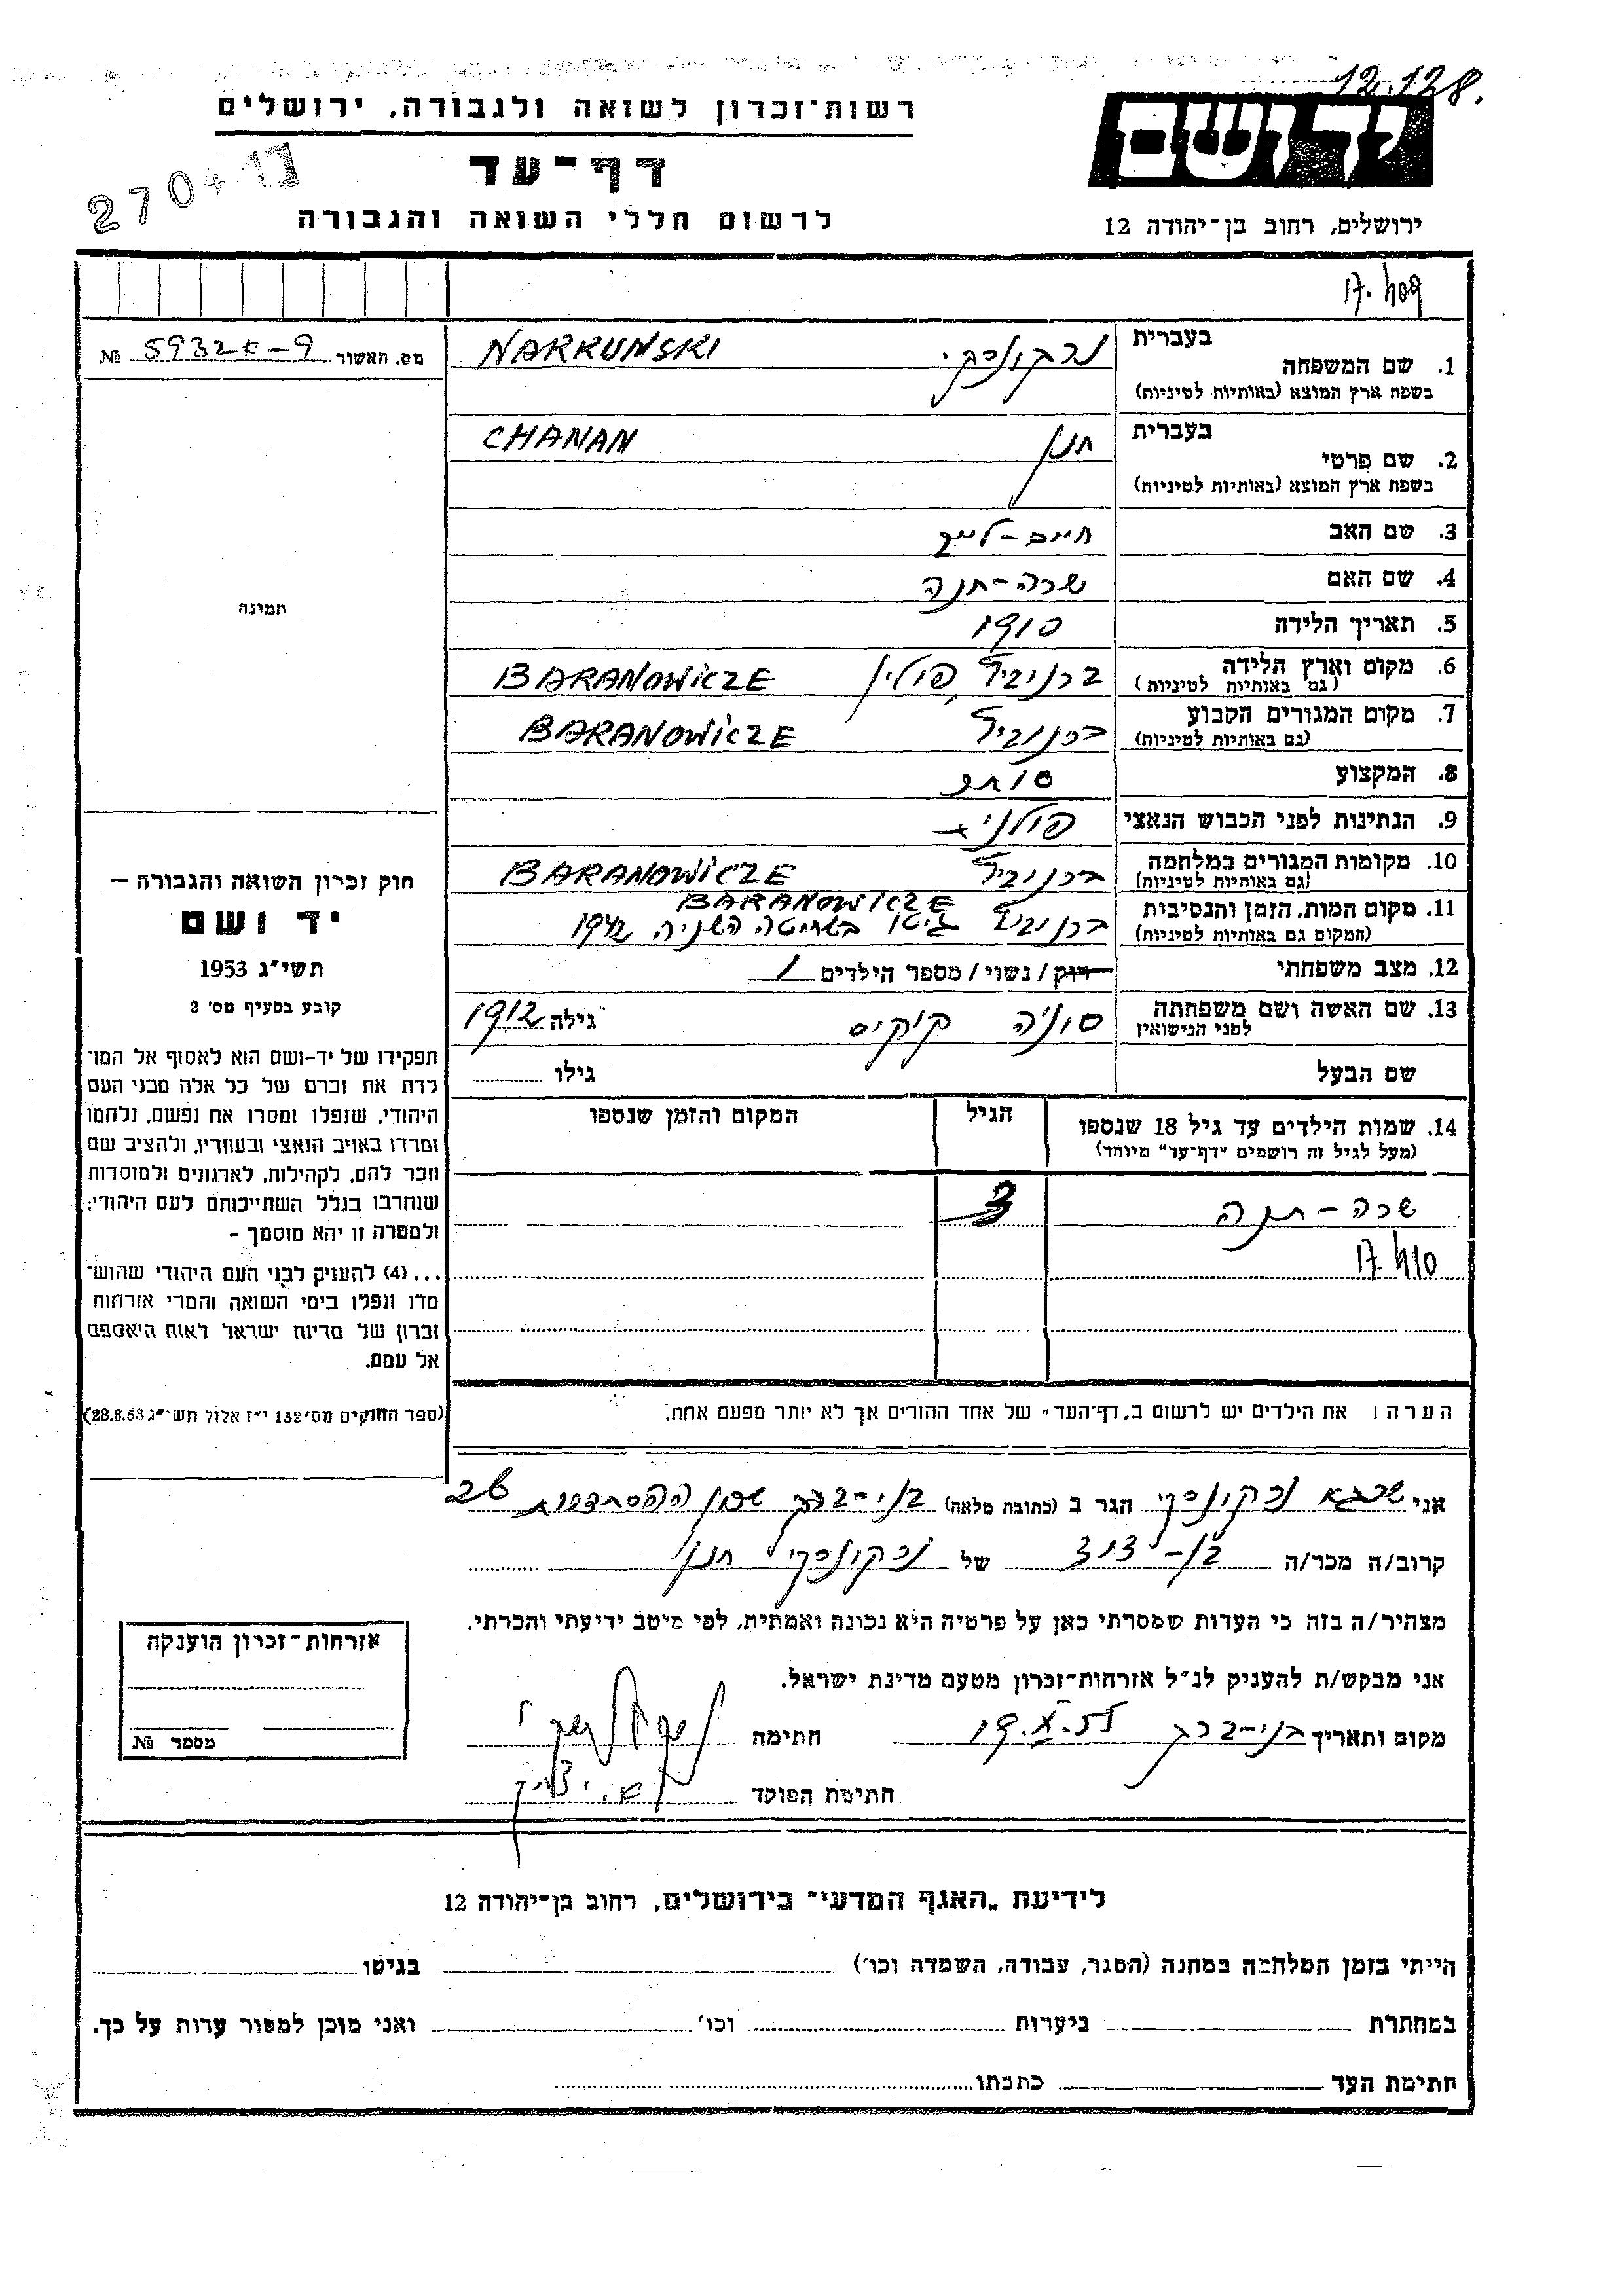 12.128.
יד ושם
ירושלים, רחוב בן־יהודה 12
רשות־זכרון לשואה ולגבורה, ירושלים
דף־עד
לרשום חללי השואה והגבורה
270417
17.409
מס. האשור № 5932
בעברית
1. שם המשפחה נרקונסקי NARKUNSKI
בשפת ארץ המוצא (באותיות לטיניות)
בעברית
2. שם פרטי חנן CHANAN
בשפת ארץ המוצא (באותיות לטיניות)
3. שם האב חיים-לייב
4. שם האם שרה-חנה
5. תאריך הלידה 1910
6. מקום וארץ הלידה ברנוביץ, פולין BARANOWICZE
(גם באותיות לטיניות)
7. מקום המגורים הקבוע ברנוביץ BARANOWICZE
(גם באותיות לטיניות)
8. המקצוע סוחר
9. הנתינות לפני הכבוש הנאצי פולנית
10. מקומות המגורים במלחמה ברנוביץ BARANOWICZE
(גם באותיות לטיניות)
BARANOWICZE
11. מקום המות, הזמן והנסיבות ברנוביץ גיטו בשחיטה השניה 1942
(המקום גם באותיות לטיניות)
12. מצב משפחתי רוק / נשוי / מספר הילדים 1
13. שם האשה ושם משפחתה סוניה גילה 1912
לפני הנישואין
שם הבעל גילו
14. שמות הילדים עד גיל 18 שנספו הגיל המקום והזמן שנספו
(מעל לגיל זה רושמים "דף־עד" מיוחד)
שרה-חנה 3
17.410
הערה: את הילדים יש לרשום ב„דף־העד" של אחד ההורים אך לא יותר מפעם אחת.
תמונה
חוק זכרון השואה והגבורה –
יד ושם
תשי״ג 1953
קובע בסעיף מס׳ 2
תפקידו של יד-ושם הוא לאסוף אל המו־
לדת את זכרם של כל אלה מבני העם
היהודי, שנפלו ומסרו את נפשם, נלחמו
ומרדו באויב הנאצי ובעוזריו, ולהציב שם
וזכר להם, לקהילות, לארגונים ולמוסדות
שנחרבו בגלל השתייכותם לעם היהודי;
ולמטרה זו יהא מוסמך –
...(4) להעניק לבני העם היהודי שהוש־
מדו ונפלו בימי השואה והמרי אזרחות
זכרון של מדינת ישראל לאות היאספם
אל עמם.
(ספר החוקים מס׳ 132 י״ז אלול תשי״ג 28.8.53)
אני שרגא נרקונסקי הגר ב (כתובת מלאה) בני-ברק שכון ההסתדרות
קרוב/ה מכר/ה בן-דוד של נרקונסקי חנן
מצהיר/ה בזה כי העדות שמסרתי כאן על פרטיה היא נכונה ואמתית, לפי מיטב ידיעתי והכרתי.
אני מבקש/ת להעניק לנ״ל אזרחות־זכרון מטעם מדינת ישראל.
מקום ותאריך בני-ברק 19.X.55 חתימה
חתימת הפוקד
אזרחות־זכרון הוענקה
מספר №
לידיעת „האגף המדעי״ בירושלים, רחוב בן־יהודה 12
הייתי בזמן המלחמה במחנה (הסגר, עבודה, השמדה וכו׳) בגיטו
במחתרת ביערות וכו׳ ואני מוכן למסור עדות על כך.
חתימת העד כתבתו